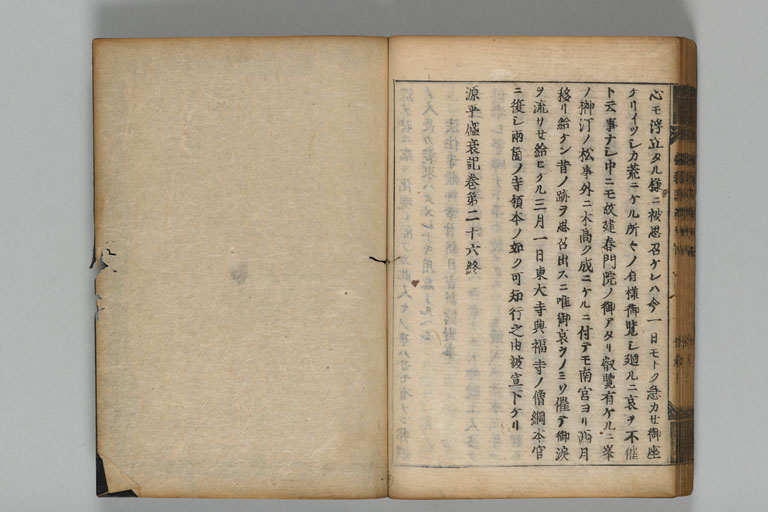 心モ浮立タル様ニ被思召ケレハ今一日モトク急カせ御座
ケリイツシカ荒ニケル所々ノ有様御覧シ廻ルニ哀ヲ不催
ト云事ナシ中ニモ故建春門院ノ御アタリ叡覧有ケルニ峯
ノ御汀ノ松事外ニ木高ク成ニケルニ付テモ南宮ヨリ西月
移リ給ケン昔ノ跡ヲ思召出スニ唯御哀ヲノミソ催テ御涙
ヲ流サせ給ヒケル三月一日東大寺興福寺ノ僧綱本官
ニ復シ両箇ノ寺領本ノ如ク可知行之由被宣下ケリ
源平盛衰記巻第二十六終